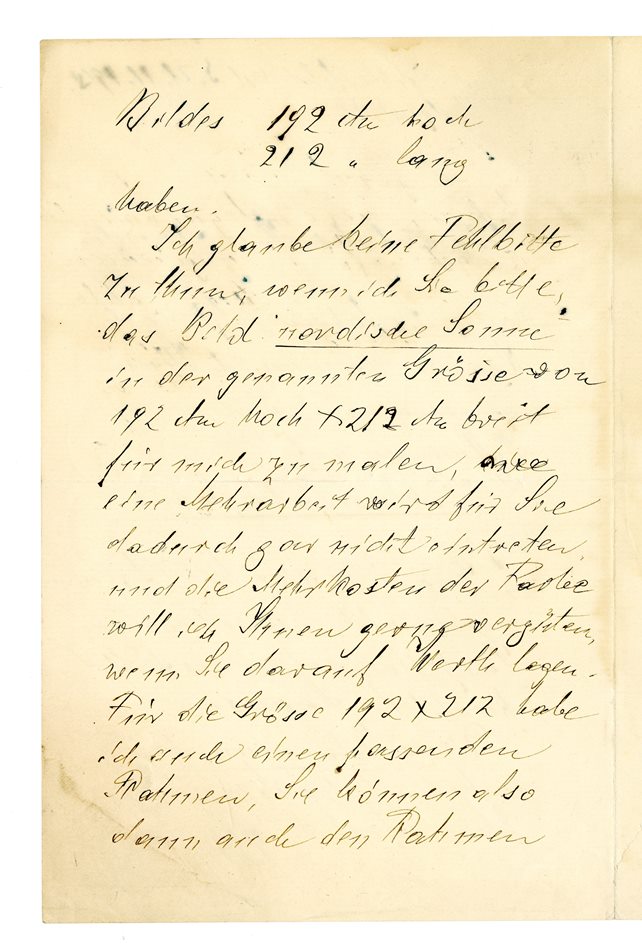 Bildes 192 ctm hoch
212 " lang
haben.
Ich glaube keine Fehlbitte
zu thun, wenn ich Sie bitte,
das Bild nordische Sonne
in der genannten Grösse von
192 ctm hoch x 212 ctm breit
für mich zu malen,
eine Mehrarbeit wird für Sie
dadurch gar nicht eintreten
und die Mehrkosten der Farbe
will ich Ihnen gerne vergüten,
wenn Sie darauf Werth legen.
Für die Grösse 192 x 212 habe
ich auch einen passenden
Rahmen, Sie können also
dann auch den Rahmen